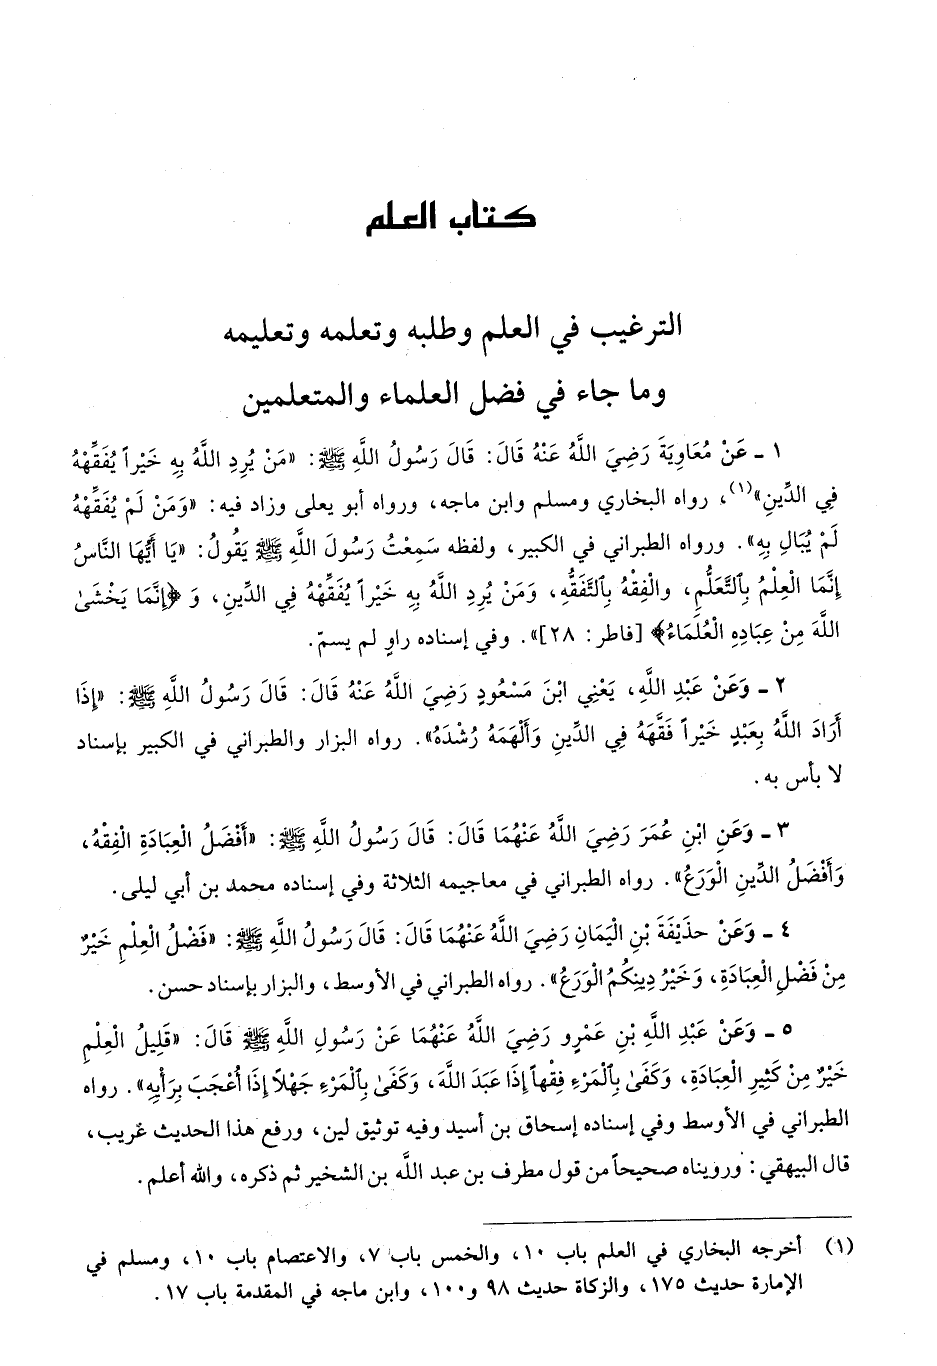 كتاب العلم
الترغيب في العلم وطلبه وتعلمه وتعليمه
وما جاء في فضل العلماء والمتعلمين
١ ـ عَنْ مُعَاوِيَةَ رَضِيَ اللَّهُ عَنْهُ قَالَ: قَالَ رَسُولُ اللَّهِ ﷺ: «مَنْ يُرِدِ اللَّهُ بِهِ خَيْراً يُفَقِّهْهُ
فِي الدِّينِ»(١)، رواه البخاري ومسلم وابن ماجه، ورواه أبو يعلى وزاد فيه: «وَمَنْ لَمْ يُفَقِّهْهُ
لَمْ يُبَالِ بِهِ». ورواه الطبراني في الكبير، ولفظه سَمِعْتُ رَسُولَ اللَّهِ ﷺ يَقُولُ: «يَا أَيُّهَا النَّاسُ
إِنَّمَا الْعِلْمُ بِٱلتَّعَلُّمِ، والْفِقْهُ بِٱلتَّفَقُّهِ، وَمَنْ يُرِدِ اللَّهُ بِهِ خَيْراً يُفَقِّهْهُ فِي الدِّينِ، وَ ﴿إِنَّمَا يَخْشَىٰ
اللَّهَ مِنْ عِبَادِهِ الْعُلَمَاءُ﴾ [فاطر: ٢٨]». وفي إسناده راوٍ لم يسمّ.
٢ ـ وَعَنْ عَبْدِ اللَّهِ، يَعْنِي ابْنَ مَسْعُودٍ رَضِيَ اللَّهُ عَنْهُ قَالَ: قَالَ رَسُولُ اللَّهِ ﷺ: «إِذَا
أَرَادَ اللَّهُ بِعَبْدٍ خَيْراً فَقَّهَهُ فِي الدِّينِ وَأَلْهَمَهُ رُشْدَهُ». رواه البزار والطبراني في الكبير بإسناد
لا بأس به.
٣ ـ وَعَنِ ابْنِ عُمَرَ رَضِيَ اللَّهُ عَنْهُمَا قَالَ: قَالَ رَسُولُ اللَّهِ ﷺ: «أَفْضَلُ الْعِبَادَةِ الْفِقْهُ،
وَأَفْضَلُ الدِّينِ الْوَرَعُ». رواه الطبراني في معاجيمه الثلاثة وفي إسناده محمد بن أبي ليلى.
٤ ـ وَعَنْ حذَيْفَةَ بْنِ الْيَمَانِ رَضِيَ اللَّهُ عَنْهُمَا قَالَ: قَالَ رَسُولُ اللَّهِ ﷺ: «فَضْلُ الْعِلْمِ خَيْرٌ
مِنْ فَضْلِ الْعِبَادَةِ، وَخَيْرُ دِينِكُمُ الْوَرَعُ». رواه الطبراني في الأوسط، والبزار بإسناد حسن.
٥ ـ وَعَنْ عَبْدِ اللَّهِ بْنِ عَمْرٍو رَضِيَ اللَّهُ عَنْهُمَا عَنْ رَسُولِ اللَّهِ ﷺ قَالَ: «قَلِيلُ الْعِلْمِ
خَيْرٌ مِنْ كَثِيرِ الْعِبَادَةِ، وَكَفَىٰ بِٱلْمَرْءِ فِقْهاً إِذَا عَبَدَ اللَّهَ، وَكَفَىٰ بِٱلْمَرْءِ جَهْلاً إِذَا أُعْجَبَ بِرَأْيِهِ». رواه
الطبراني في الأوسط وفي إسناده إسحاق بن أسيد وفيه توثيق لين، ورفع هذا الحديث غريب،
قال البيهقي: ورويناه صحيحاً من قول مطرف بن عبد اللَّه بن الشخير ثم ذكره، والله أعلم.
(١) أخرجه البخاري في العلم باب ١٠، والخمس باب ٧، والاعتصام باب ١٠، ومسلم في
الإمارة حديث ١٧٥، والزكاة حديث ٩٨ و١٠٠، وابن ماجه في المقدمة باب ١٧.